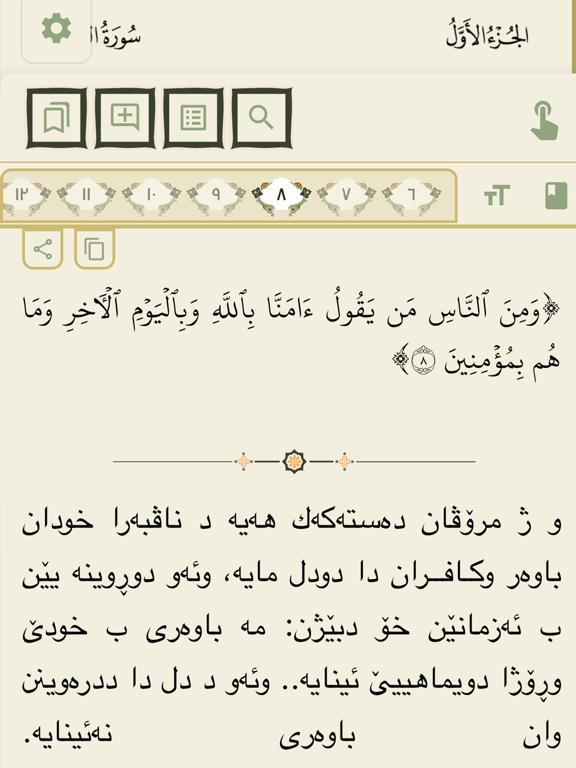 الجُزْءُ الأَوَّلُ
سُورَةُ
٦ ٧ ٨ ٩ ١٠ ١١ ١٢
﴿وَمِنَ ٱلنَّاسِ مَن يَقُولُ ءَامَنَّا بِٱللَّهِ وَبِٱلۡيَوۡمِ ٱلۡأٓخِرِ وَمَا
هُم بِمُؤۡمِنِينَ ٨﴾
و ژ مرۆڤان دەستەكەك هەیە د ناڤبەرا خودان
باوەر وكافـران دا دودل مایە، وئەو دوڕوینە یێن
ب ئەزمانێن خۆ دبێژن: مە باوەری ب خودێ
وڕۆژا دویماهییێ ئینایە.. وئەو د دل دا ددرەوینن
وان باوەری نەئینایە.